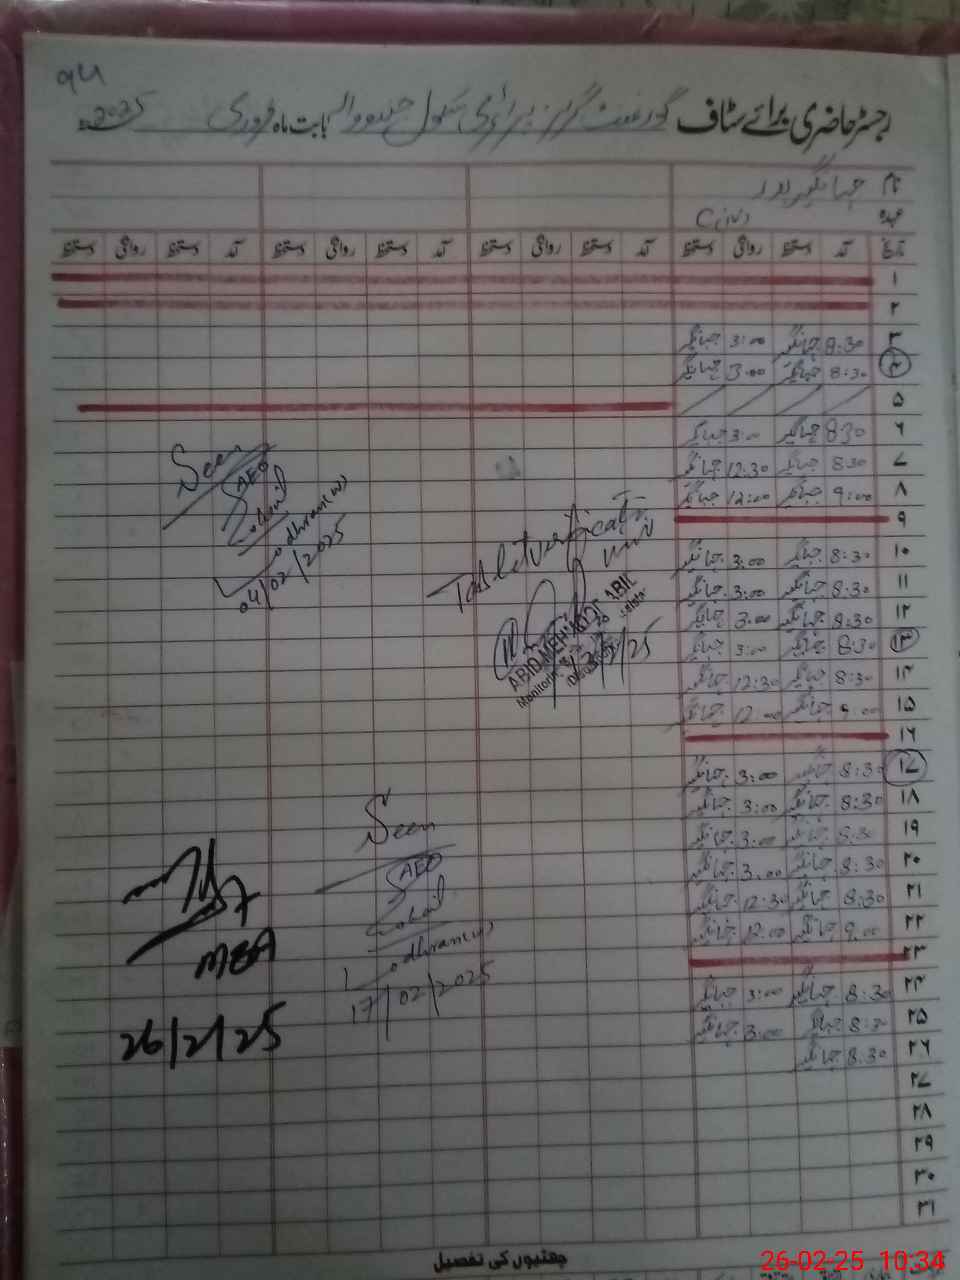 رجسٹر حاضری برائے سٹاف گورنمنٹ گرلز پرائمری سکول بابت ماہ فروری 2025ء
نام جہانگیر
عہدہ
تاریخ آمد دستخط روانگی دستخط آمد دستخط روانگی دستخط آمد دستخط روانگی دستخط آمد دستخط روانگی دستخط
۱
۲
۳ 8:30 جہانگیر 3:00 جہانگیر
۴ 8:30 جہانگیر 3:00 جہانگیر
۵
۶ 8:30 جہانگیر 3:00 جہانگیر
۷ 8:30 جہانگیر 12:30 جہانگیر
۸ 9:00 جہانگیر 12:00 جہانگیر
۹
۱۰ 8:30 جہانگیر 3:00 جہانگیر
۱۱ 8:30 جہانگیر 3:00 جہانگیر
۱۲ 8:30 جہانگیر 3:00 جہانگیر
۱۳ 8:30 جہانگیر 3:00 جہانگیر
۱۴ 8:30 جہانگیر 12:30 جہانگیر
۱۵ 9:00 جہانگیر 12:00 جہانگیر
۱۶
۱۷ 8:30 جہانگیر 3:00 جہانگیر
۱۸ 8:30 جہانگیر 3:00 جہانگیر
۱۹ 8:30 جہانگیر 3:00 جہانگیر
۲۰ 8:30 جہانگیر 3:00 جہانگیر
۲۱ 8:30 جہانگیر 12:30 جہانگیر
۲۲ 9:00 جہانگیر 12:00 جہانگیر
۲۳
۲۴ 8:30 جہانگیر 3:00 جہانگیر
۲۵ 8:30 جہانگیر 3:00 جہانگیر
۲۶ 8:30 جہانگیر
۲۷
۲۸
۲۹
۳۰
۳۱
Seen
AEO
Sohail
Lodhran(w)
04/02/2025
Tablet verification
ABID
Monitoring
Seen
AEO
Sohail
Lodhran(w)
17/02/2025
MEA
26/2/25
چھٹیوں کی تفصیل
26-02-25 10:34